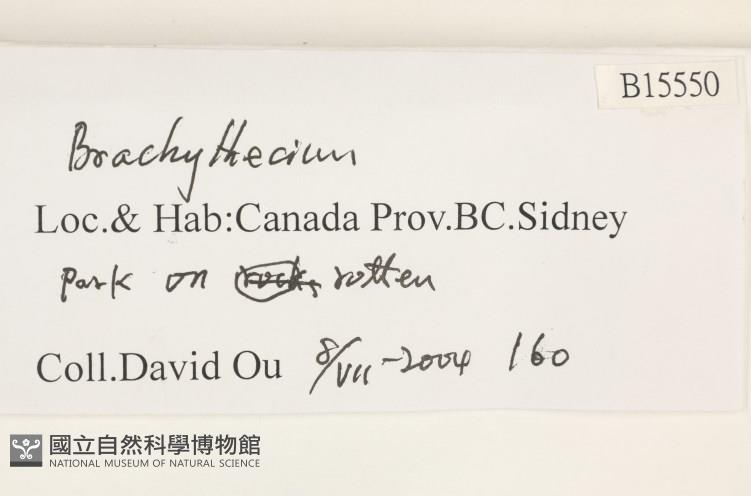 B15550
Brachythecium
Loc.& Hab:Canada Prov.BC.Sidney
park on rotten
Coll.David Ou 8/VII-2004 160
國立自然科學博物館
NATIONAL MUSEUM OF NATURAL SCIENCE